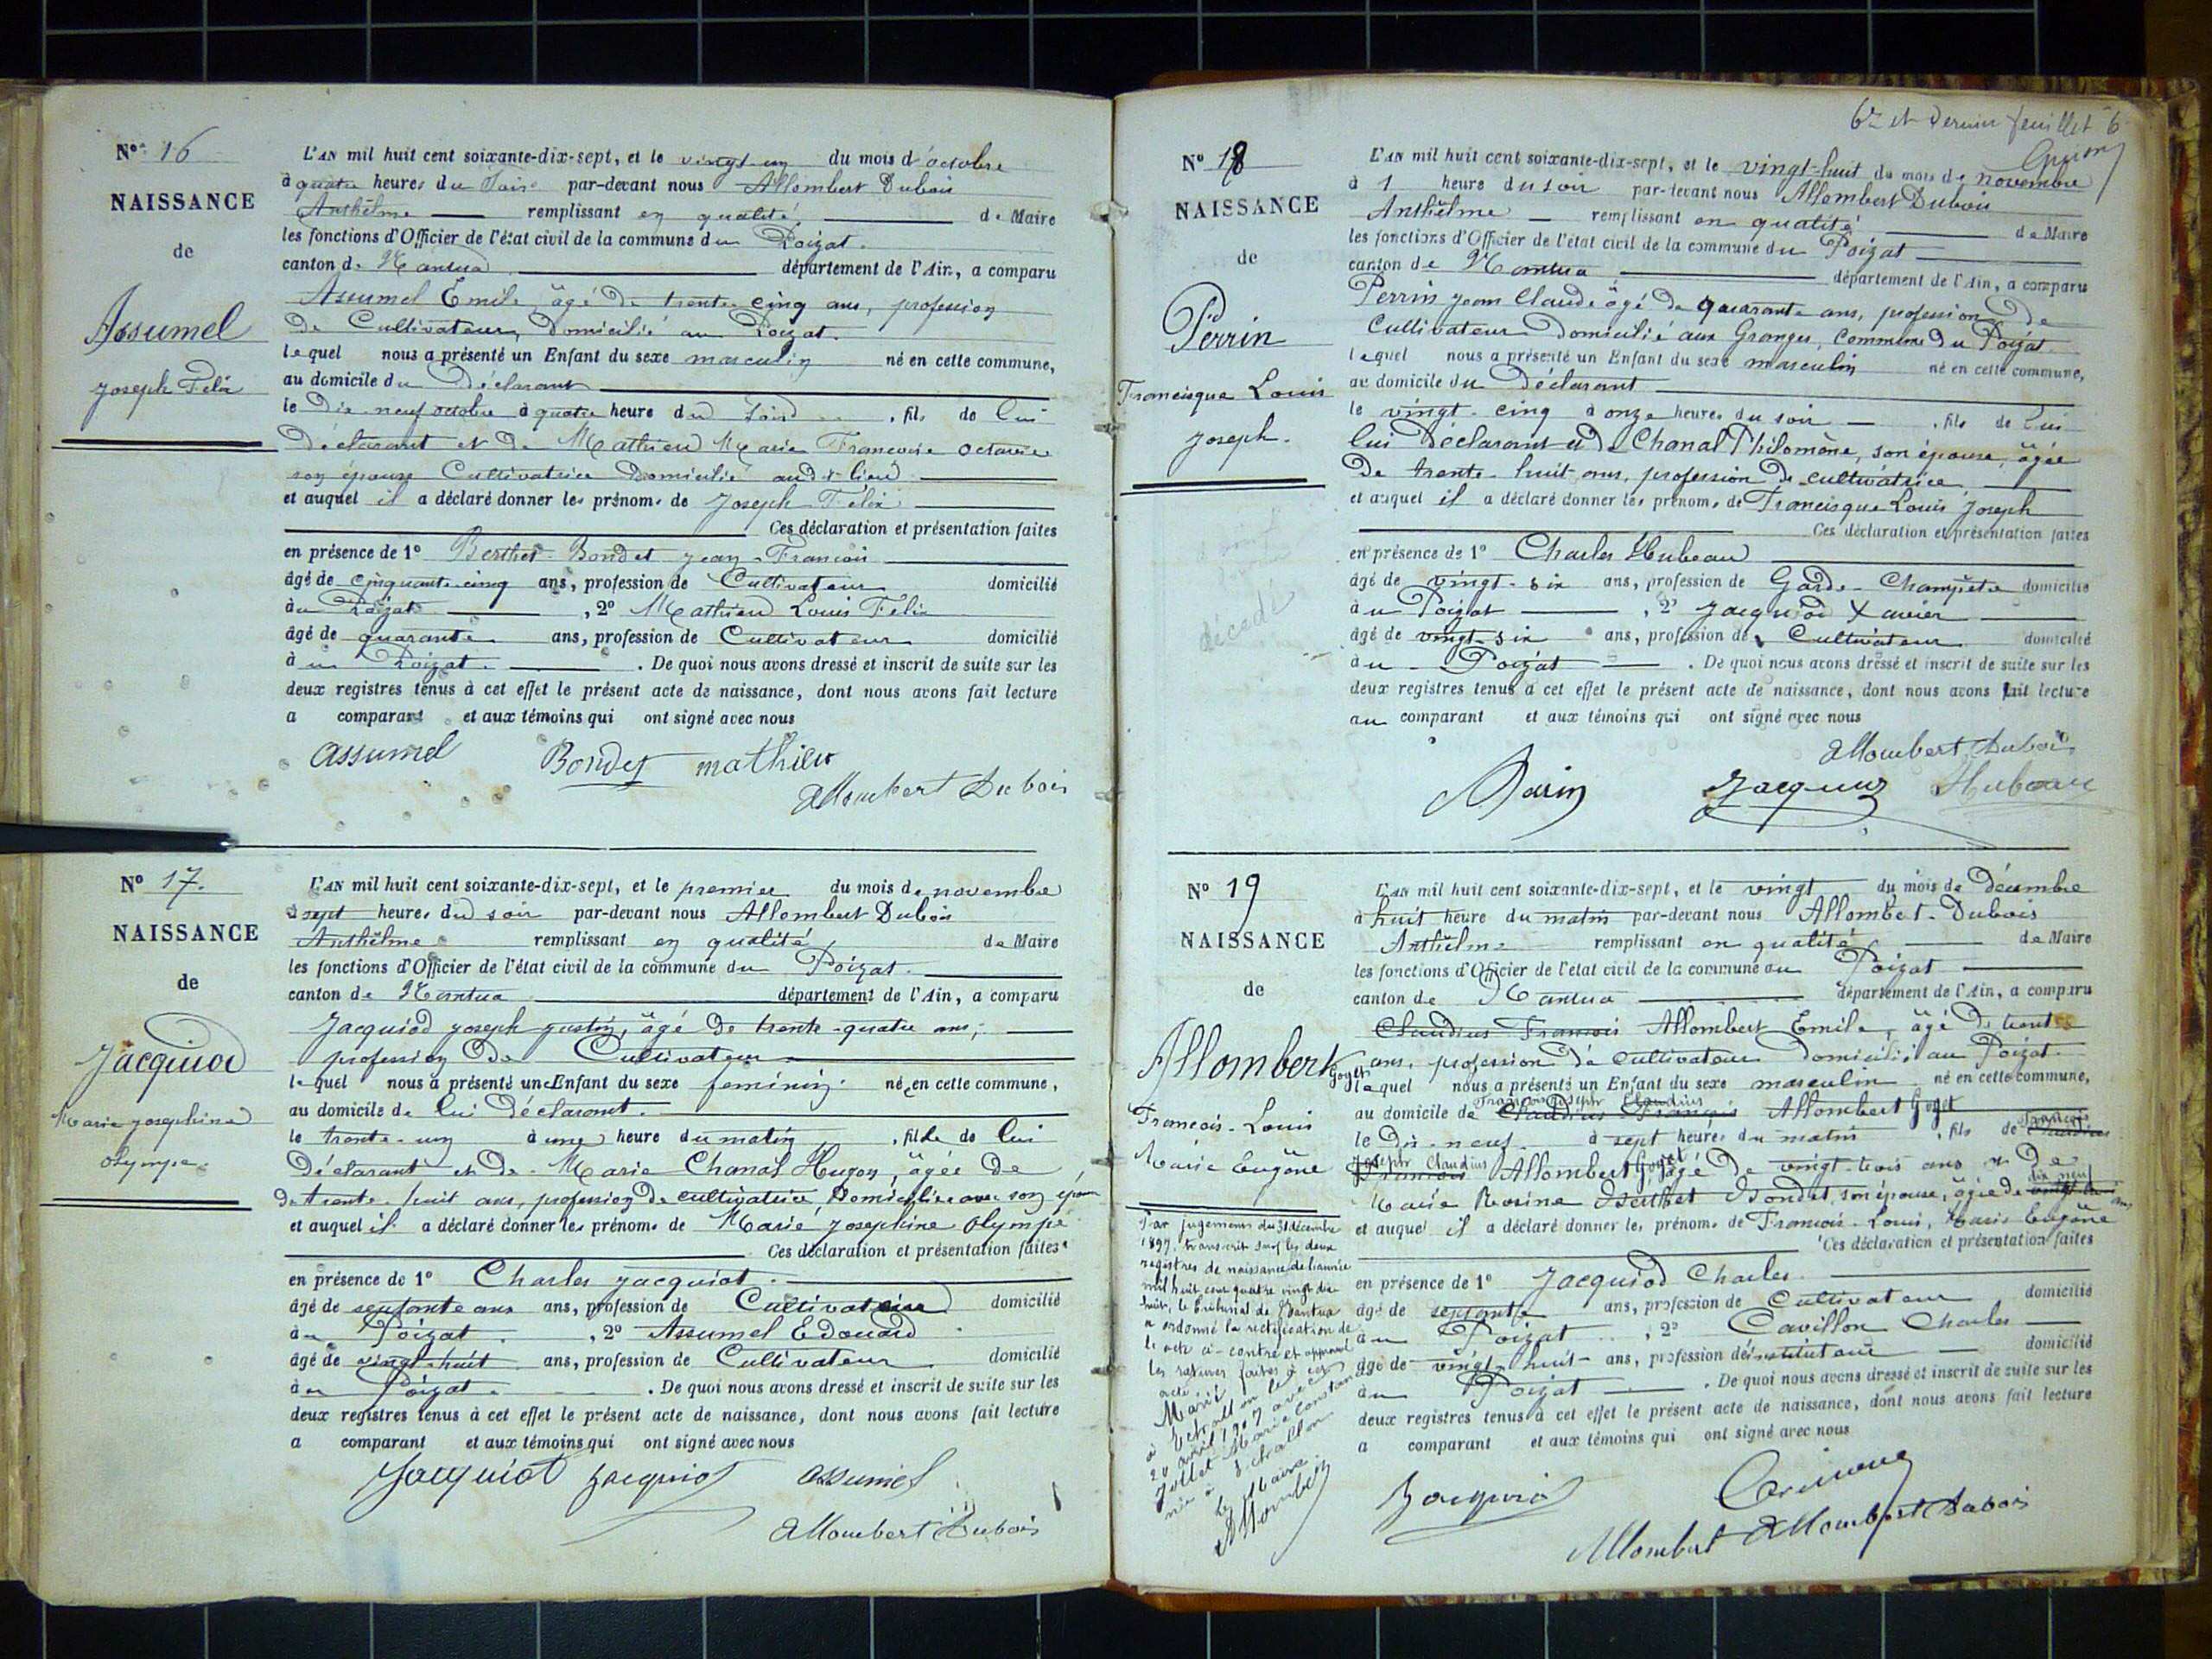 N° 16
NAISSANCE
de
Assumel
Joseph Félix
L'AN mil huit cent soixante-dix-sept, et le vingt-un du mois d'octobre
à quatre heures du Soir par-devant nous Allombert Dubois
Anthelme remplissant en qualité de Maire
les fonctions d'Officier de l'état civil de la commune du Poizat.
canton de Nantua département de l'Ain, a comparu
Assumel Emile, âgé de trente-cinq ans, profession
de Cultivateur, domicilié au Poizat.
lequel nous a présenté un Enfant du sexe masculin né en cette commune,
au domicile du déclarant
le dix-neuf octobre à quatre heure du Soir, fils de lui
déclarant et de Mathieu Marie Françoise Octavie
son épouse Cultivatrice domicilié audit lieu
et auquel il a déclaré donner les prénoms de Joseph Félix
Ces déclaration et présentation faites
en présence de 1° Berthet-Bondet Jean-François
âgé de cinquante-cinq ans, profession de Cultivateur domicilié
au Poizat, 2° Mathieu Louis Félix
âgé de quarante ans, profession de Cultivateur domicilié
à u Poizat. De quoi nous avons dressé et inscrit de suite sur les
deux registres tenus à cet effet le présent acte de naissance, dont nous avons fait lecture
a comparant et aux témoins qui ont signé avec nous
Assumel Bondet mathieu
Allombert Dubois
N° 17.
NAISSANCE
de
Jacquiod
Marie Josephine
Olympe
L'AN mil huit cent soixante-dix-sept, et le premier du mois de novembre
à sept heures du soir par-devant nous Allombert Dubois
Anthelme remplissant en qualité de Maire
les fonctions d'Officier de l'état civil de la commune du Poizat.
canton de Nantua département de l'Ain, a comparu
Jacquiod Joseph Justin, âgé de trente-quatre ans,
profession de Cultivateur
lequel nous a présenté un Enfant du sexe feminin né en cette commune,
au domicile de lui déclarant.
le trente-un à une heure du matin, fille de lui
déclarant et de Marie Chanal Hugon, âgée de
de trente-huit ans, profession de cultivatrice, domiciliée avec son époux
et auquel il a déclaré donner les prénoms de Marie, Josephine Olympe
Ces déclaration et présentation faites
en présence de 1° Charles Jacquiot.
âgé de septante ans ans, profession de Cultivateur domicilié
au Poizat, 2° Assumel Edouard
âgé de vingt-huit ans, profession de Cultivateur domicilié
au Poizat. De quoi nous avons dressé et inscrit de suite sur les
deux registres tenus à cet effet le présent acte de naissance, dont nous avons fait lecture
a comparant et aux témoins qui ont signé avec nous
Jacquiot Jacquiot Assumel
Allombert Dubois
6e et dernier feuillet 6
N° 18
NAISSANCE
de
Perrin
Francisque Louis
Joseph.
décédé
L'AN mil huit cent soixante-dix-sept, et le vingt-huit du mois de novembre
à 1 heure du soir par-devant nous Allombert Dubois
Anthelme remplissant en qualité de Maire
les fonctions d'Officier de l'état civil de la commune du Poizat
canton de Nantua département de l'Ain, a comparu
Perrin Jean Claude âgé de quarante ans, profession de
Cultivateur domicilié aux Granges, commune du Poizat
lequel nous a présenté un Enfant du sexe masculin né en cette commune,
au domicile du déclarant
le vingt-cinq à onze heures du soir, fils de lui
lui déclarant et de Chanal Philomène, son épouse, âgée
de trente-huit ans, profession de cultivatrice
et auquel il a déclaré donner les prénoms de Francisque Louis Joseph
Ces déclaration et présentation faites
en présence de 1° Charles Hubeau
âgé de vingt-six ans, profession de Garde-Champêtre domicilié
à u Poizat, 2° Jacquiod Xavier
âgé de vingt-six ans, profession de Cultivateur domicilié
à u Poizat. De quoi nous avons dressé et inscrit de suite sur les
deux registres tenus à cet effet le présent acte de naissance, dont nous avons fait lecture
au comparant et aux témoins qui ont signé avec nous
Allombert Dubois
Hubeau
N° 19
NAISSANCE
de
Allombert
Goyet
François-Louis
Marie Eugène
Par jugement du 31 décembre
1897, transcrit sur les deux
registres de naissance de l'année
mil huit cent quatre vingt dix
huit, le tribunal de Nantua
a ordonné la rectification de
le acte ci-contre et approuvé
les ratures faites à cet
acte.
Marié
à le
20 avril 1907 avec
Jollet Marie Constance
née à
Le Maire
Allombert
L'AN mil huit cent soixante-dix-sept, et le vingt du mois de Décembre
à huit heure du matin par-devant nous Allombet-Dubois
Anthelme remplissant en qualité de Maire
les fonctions d'Officier de l'état civil de la commune au Poizat
canton de Nantua département de l'Ain, a comparu
Claudius François Allombert Emile, âgé de trente
ans, profession de cultivateur domicilié au Poizat
lequel nous a présenté un Enfant du sexe masculin né en cette commune,
François Joseph Claudius
au domicile de Claudius François Allombert Goyet
le dix-neuf à sept heures du matin, fils de François
Joseph Claudius Allombert Goyet âgé de vingt-trois ans et de
Marie Rosine Berthet Bondet, son épouse, âgée de dix neuf ans
et auquel il a déclaré donner les prénoms de François-Louis, Marie Eugène
Ces déclaration et présentation faites
en présence de 1° Jacquiod Charles
âgé de septante ans, profession de Cultivateur domicilié
à u Poizat, 2° Cavillon Charles
âgé de vingt-huit ans, profession de instituteur domicilié
au Poizat. De quoi nous avons dressé et inscrit de suite sur les
deux registres tenus à cet effet le présent acte de naissance, dont nous avons fait lecture
a comparant et aux témoins qui ont signé avec nous
Jacquiod
Allombert Allombert Dubois